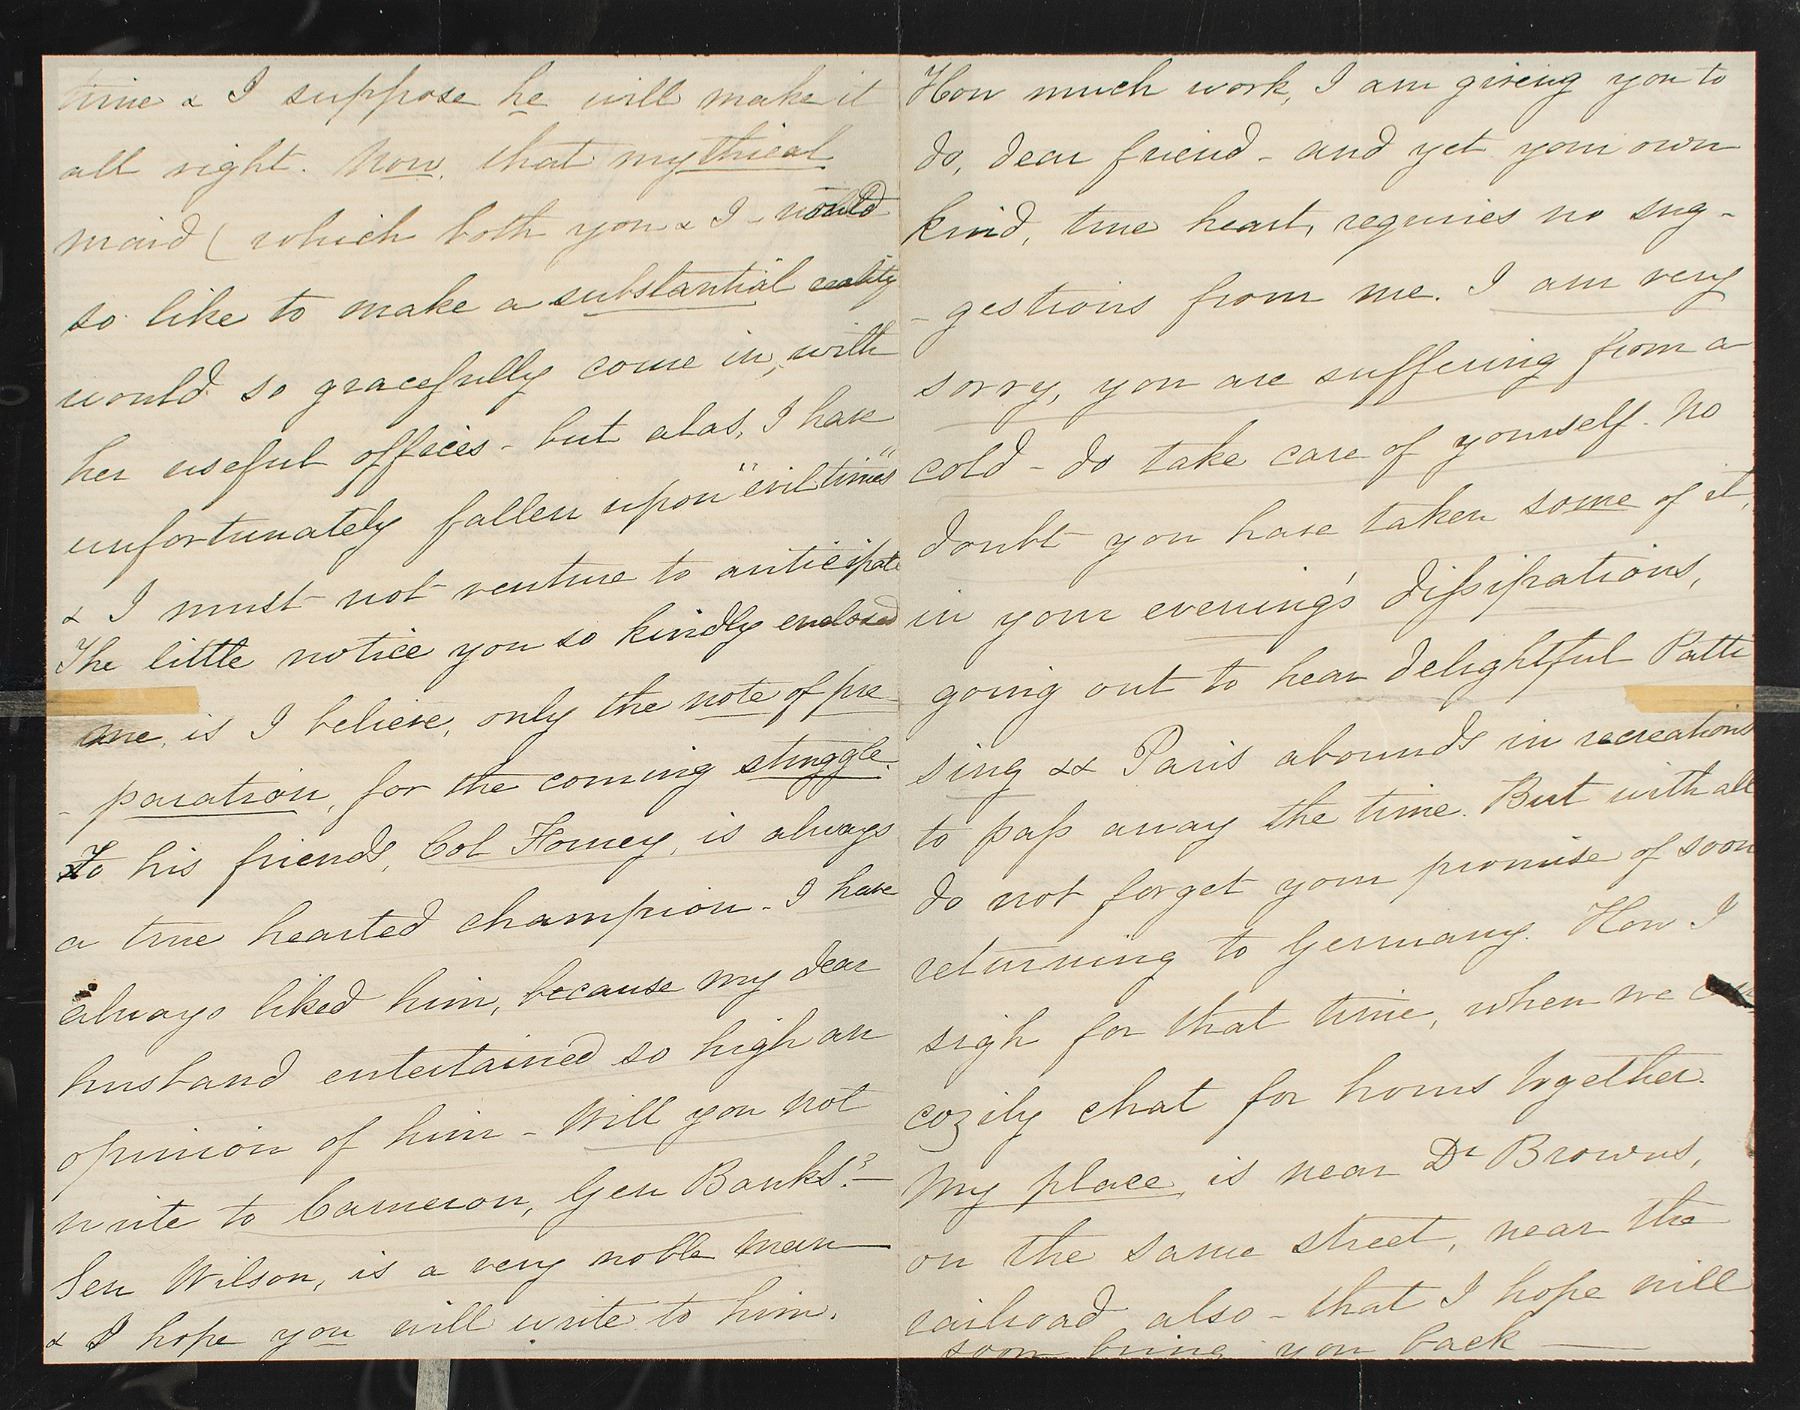 time & I suppose he will make it
all right. Now, that mythical
maid (which both you & I would
so like to make a substantial reality
would so gracefully come in, with
her useful offices - but alas, I have
unfortunately fallen upon "evil times"
& I must not venture to anticipate
The little notice you so kindly enclosed
me, is I believe, only the note of pre
- paration, for the coming struggle.
To his friends, Col Forney, is always
a true hearted champion - I have
always liked him, because my dear
husband entertained so high an
opinion of him - Will you not
write to Cameron, Gen Banks? -
Sen Wilson, is a very noble man
& I hope you will write to him.
How much work, I am giving you to
do, dear friend - and yet your own
kind, true heart, requires no sug -
- gestions from me. I am very
sorry, you are suffering from a
cold - do take care of yourself. No
doubt you have taken some of it,
in your evening's dissipations,
going out to hear delightful Patti
sing && Paris abounds in recreations
to pass away the time. But with all
do not forget your promise of soon
returning to Germany. How I
sigh for that time, when we can
cozily chat for hours together.
My place, is near Dr Browns,
on the same street, near the
railroad also - that I hope will
soon bring you back -